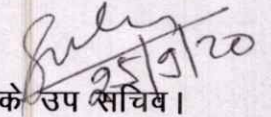 25/9/20
के उप सचिव।